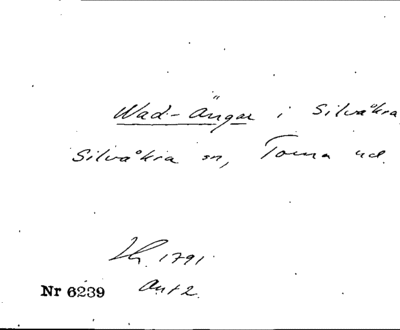 Wad-Ängar i Silvåkra
Silvåkra sn, Torna hd.
1791
Nr 6239 Ant 2.